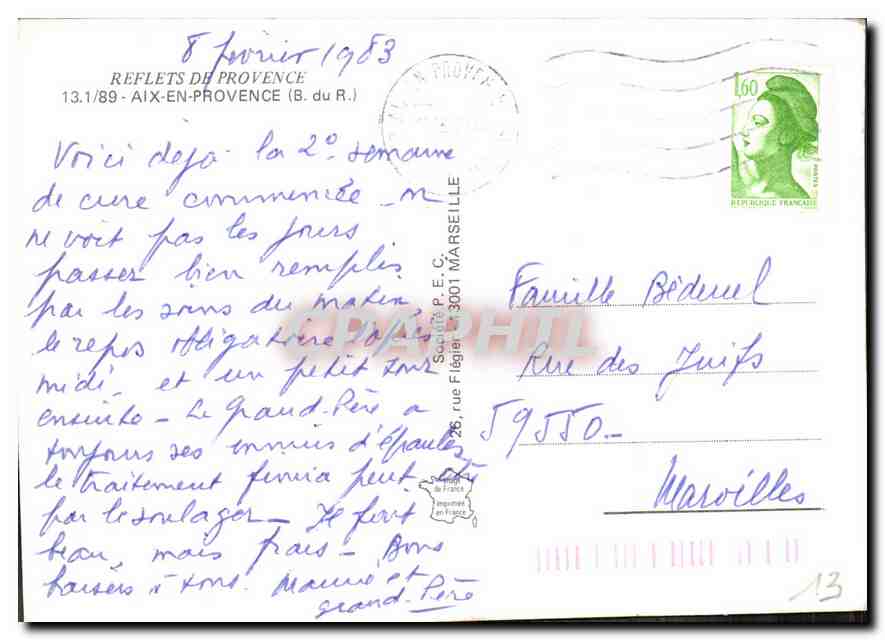 8 février 1983
REFLETS DE PROVENCE
13.1/89 - AIX-EN-PROVENCE (B. du R.)
Voici déjà la 2° semaine
de cure commencée - on
ne voit pas les jours
passer bien remplis
par les soins du matin,
le repos obligatoire l'après
midi - et un petit tour
ensuite - Le Grand-Père a
toujours ses ennuis d'épaules
le traitement finira peut être
par le soulager - Il fait
beau, mais frais - Bons
baisers à tous. Mamie et
grand-Père
Société P.E.C.
26, rue Flégier - 13001 MARSEILLE
CPAPHIL
image
de France
imprimée
en France
AIX EN PROVENCE
1,60
POSTES
REPUBLIQUE FRANÇAISE
Famille
Rue des Juifs
59550 -
Maroilles
13